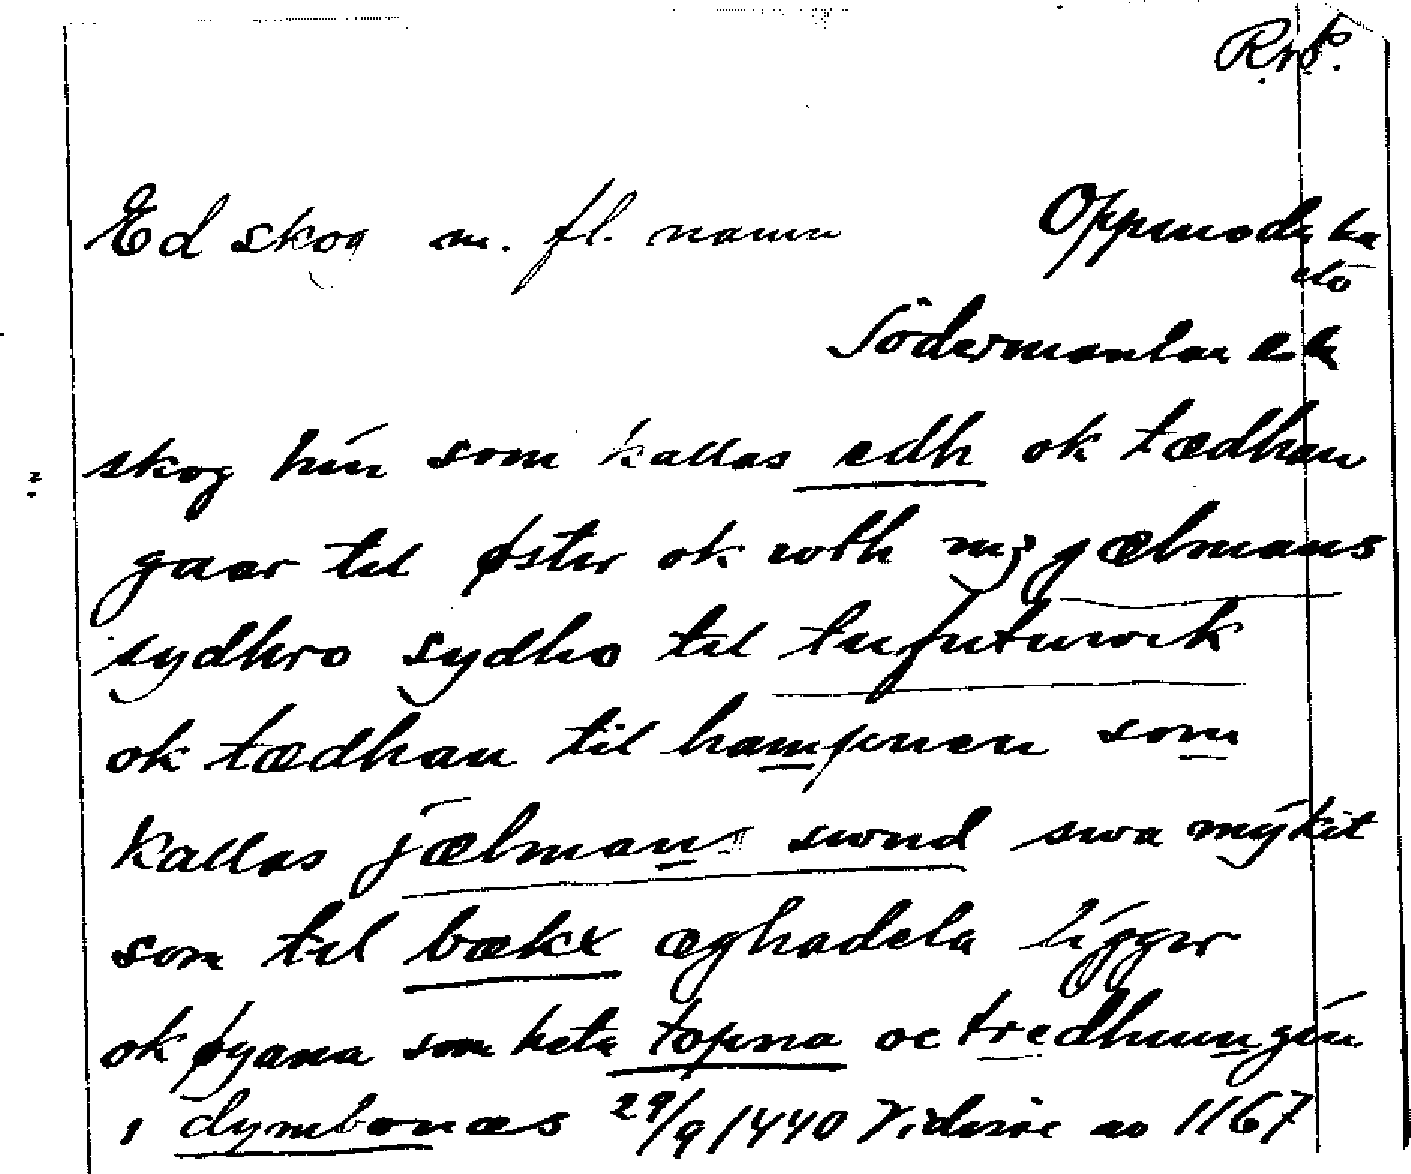 Rrb.
Ed skog m. fl. namn Oppunda hd
Södermanland
skog hin som kallas edh ok tædhan
gaar til øster ok wth mz jælmans
sydhro sydho til tufutuwik
ok tædhan til hampnen som
kallas jælmans swnd swa mykit
som til bækx æghadela ligger
ok øyana som heta topna oc tredhungin
i dymbonæs 29/9 1440 Vidisse ao 1167